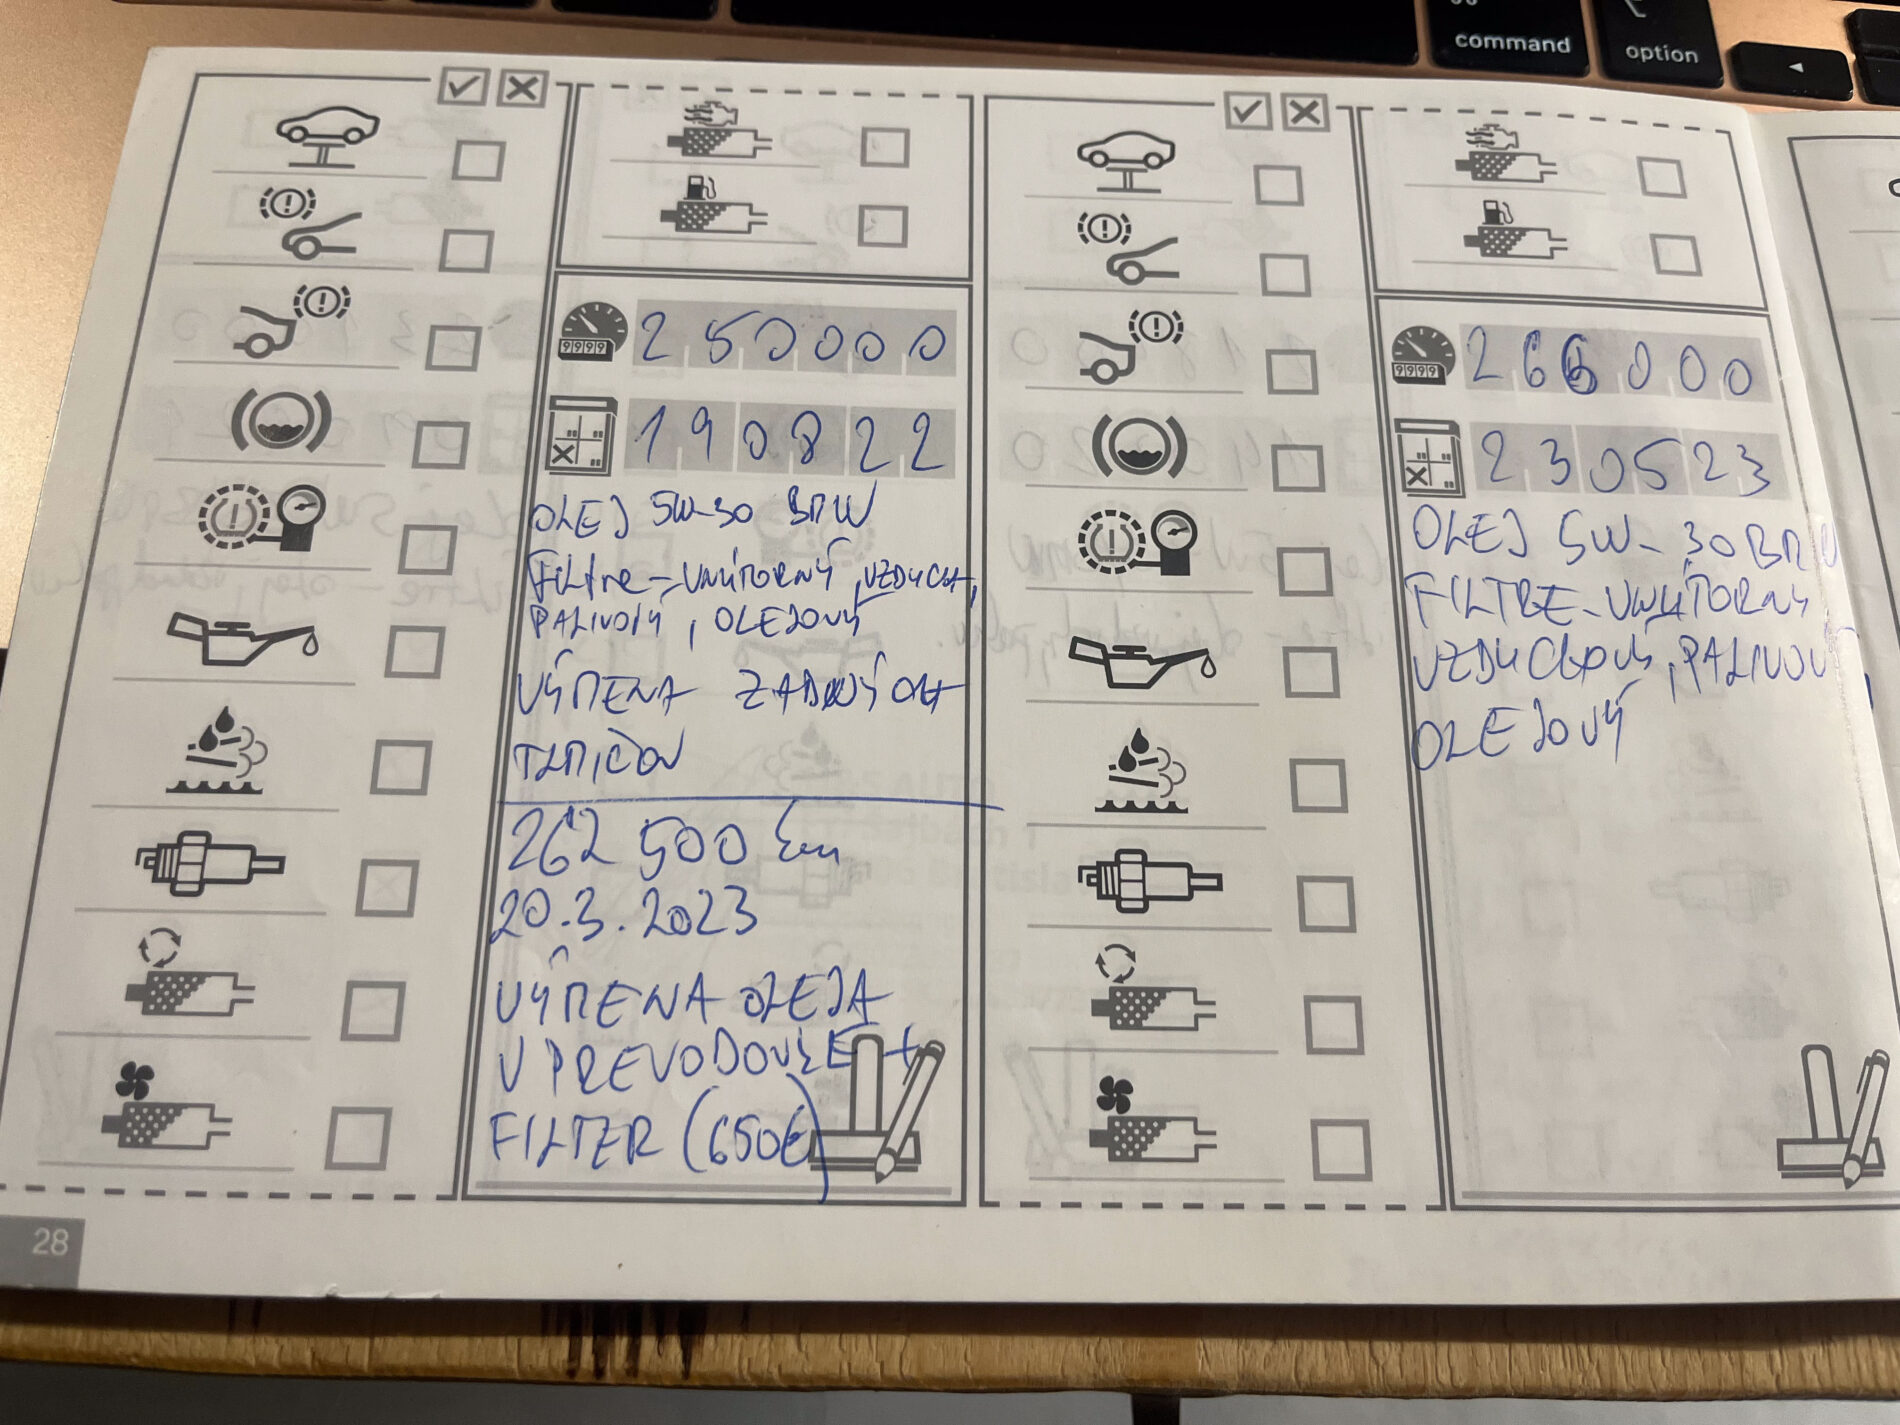 command
option
250000
190822
OLEJ 5W-30 BMW
FILTRE - VNÚTORNÝ, VZDUCH,
PALIVOVÝ, OLEJOVÝ
VÝMENA ZADNÝCH
TLMIČOV
262 500 km
20.3.2023
VÝMENA OLEJA
V PREVODOVKE +
FILTER (650€)
266000
230523
OLEJ 5W-30 BMW
FILTRE - VNÚTORNÝ
VZDUCHOVÝ, PALIVOVÝ,
OLEJOVÝ
28